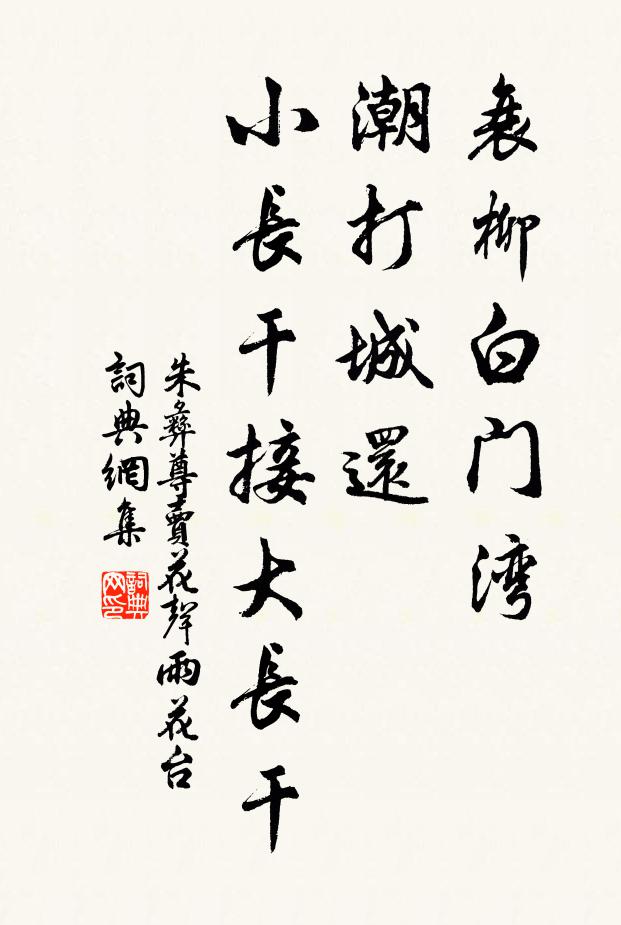 衰柳白门湾
潮打城還
小長干接大長干
朱彝尊賣花聲雨花台
詞典網集
詞典网印